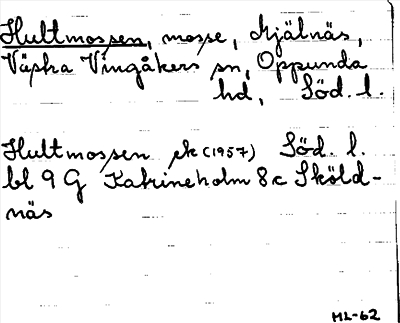 Hultmossen, mosse, Hjälnäs,
Västra Vingåkers sn, Oppunda
hd, Söd. l.
Hultmossen ek (1957) Söd. l.
bl 9 G Katrineholm 8 c Sköld-
näs
ML-62